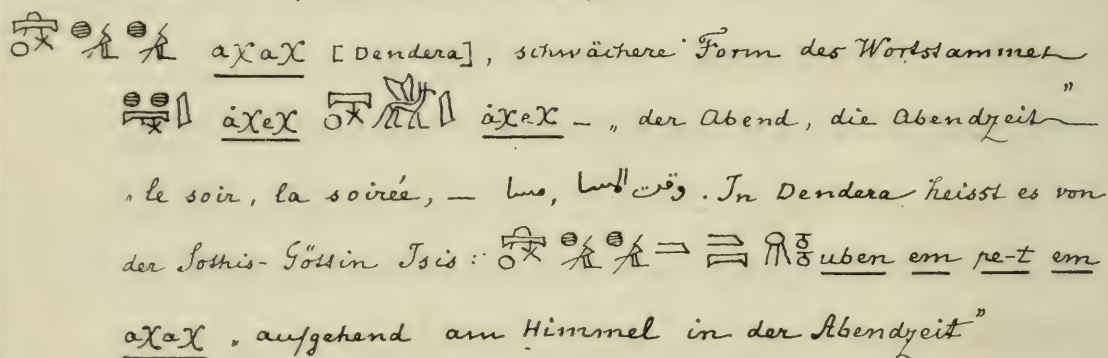 aχaχ [Dendera], schwächere Form des Wortstammes
ȧχeχ ȧχeχ – „der Abend, die Abendzeit”
„le soir, la soirée, – مسا, وقت المسا. In Dendera heisst es von
der Sothis-Göttin Isis: uben em pe-t em
aχaχ „aufgehend am Himmel in der Abendzeit”